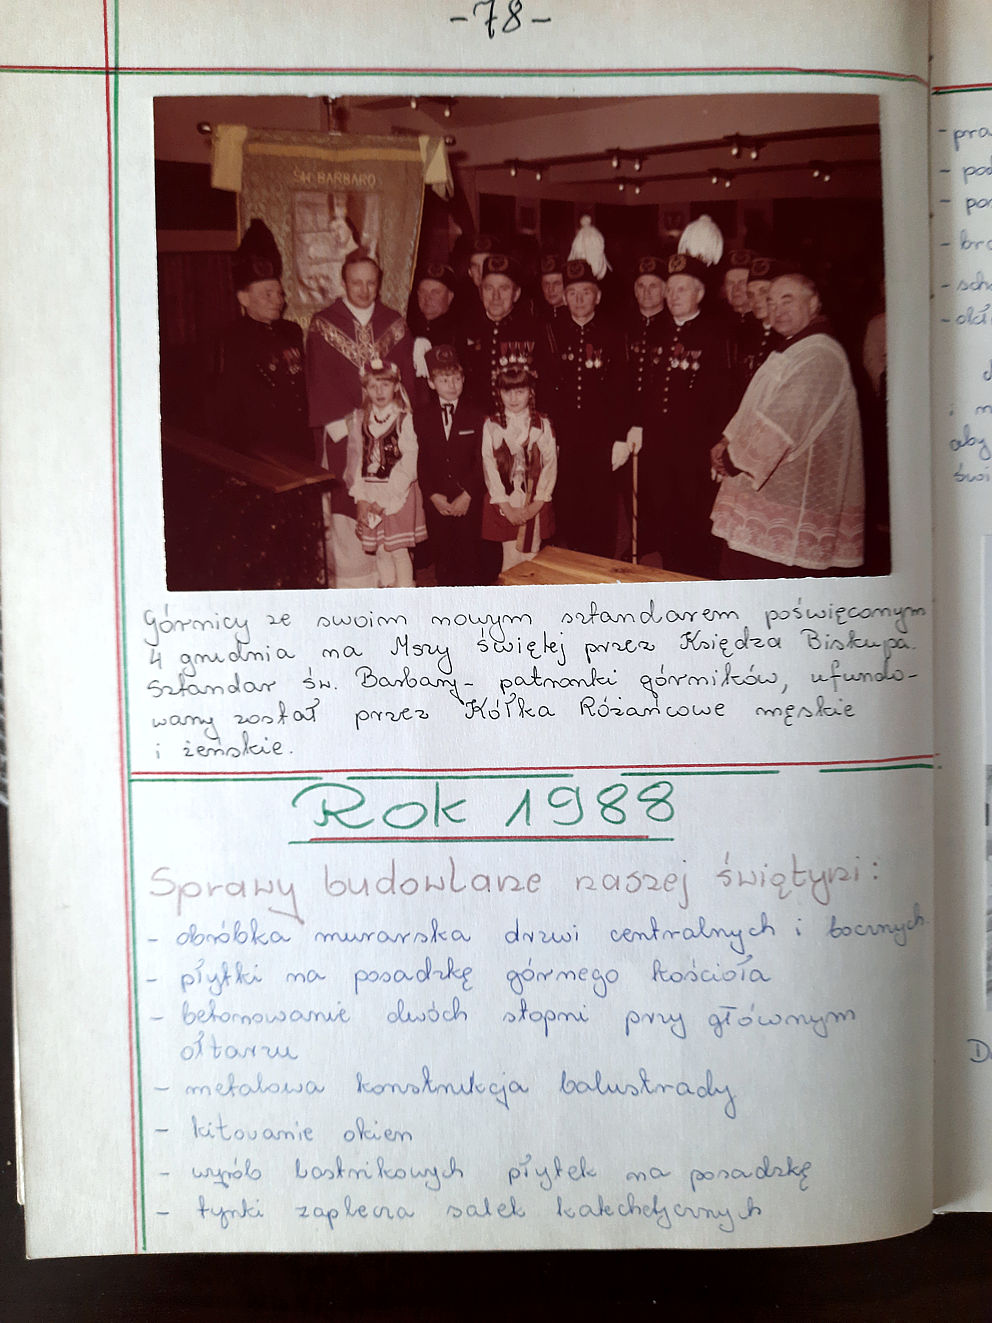 -78-
ŚW. BARBARO
Górnicy ze swoim nowym sztandarem poświęconym
4 grudnia na Mszy świętej przez Księdza Biskupa.
Sztandar św. Barbary - patronki górników, ufundo-
wany został przez Kółka Różańcowe męskie
i żeńskie.
Rok 1988
Sprawy budowlane naszej świątyni:
- obróbka murarska drzwi centralnych i bocznych.
- płytki na posadzkę górnego kościoła
- betonowanie dwóch stopni przy głównym
ołtarzu
- metalowa konstrukcja balustrady
- kitowanie okien
- wyrób lastrikowych płytek na posadzkę
- tynki zaplecza salek katechetycznych
- pra
- pod
- por
- bro
- scho
i m
aby
świ